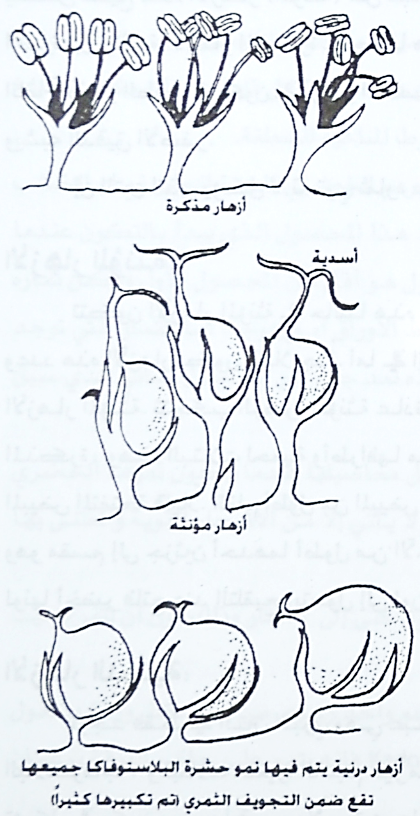 أزهار مذكرة
أسدية
أزهار مؤنثة
أزهار درنية يتم فيها نمو حشرة البلاستوفاكا جميعها
تقع ضمن التجويف الثمري (تم تكبيرها كثيراً)